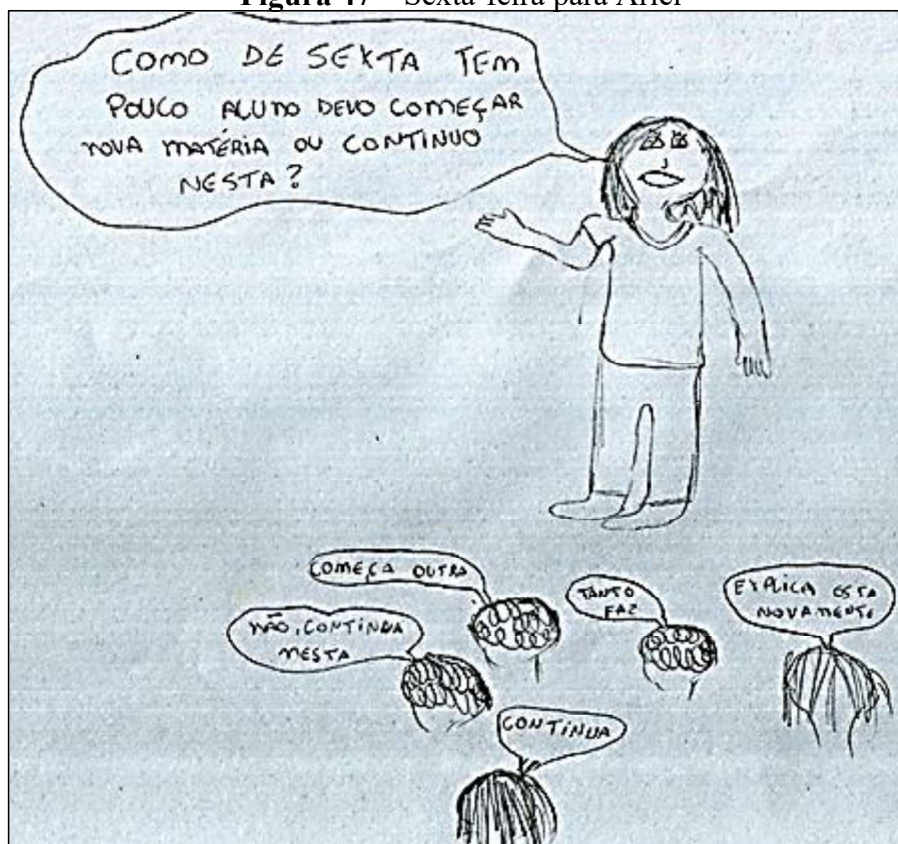 Figura 47 – Sexta-feira para Ariel
COMO DE SEXTA TEM
POUCO ALUNO DEVO COMEÇAR
NOVA MATÉRIA OU CONTINUO
NESTA?
COMEÇA OUTRA
TANTO
FAZ
EXPLICA ESTA
NOVAMENTE
NÃO, CONTINUA
NESTA
CONTINUA